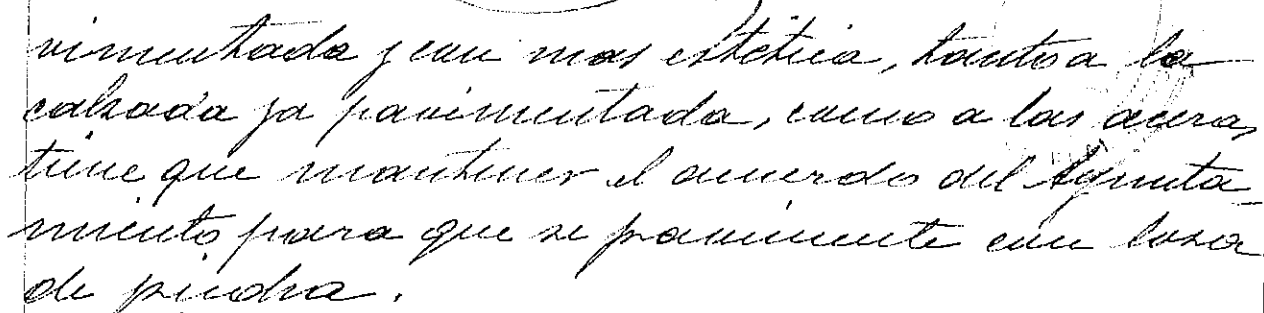 vimentada y con mas estética, tanto a la
calzada ya pavimentada, como a las aceras,
tiene que mantener el acuerdo del Ayunta-
miento para que se pavimente con losa
de piedra.